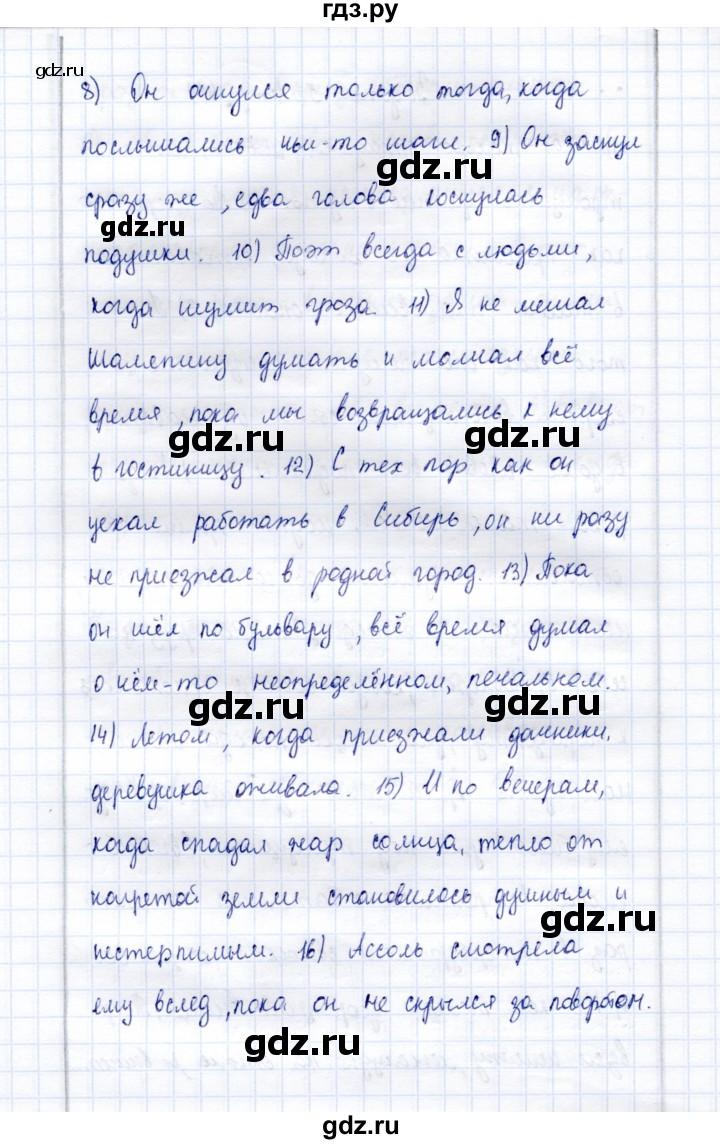 гдз.ру
gdz.ru
8) Он очнулся только тогда, когда
послышались чьи-то шаги. 9) Он заснул
gdz.ru
сразу же, едва голова коснулась
gdz.ru
подушки. 10) Поэт всегда с людьми,
когда шумит гроза. 11) Я не мешал
Шаляпину думать и молчал всё
время, пока мы возвращались к нему
gdz.ru
gdz.ru
в гостиницу. 12) С тех пор как он
уехал работать в Сибирь, он ни разу
не приезжал в родной город. 13) Пока
он шёл по бульвару, всё время думал
о чём-то неопределённом, печальном.
gdz.ru
gdz.ru
14) Летом, когда приезжали дачники,
деревушка оживала. 15) И по вечерам,
когда спадал жар солнца, тепло от
нагретой земли становилось душным и
gdz.ru
нестерпимым. 16) Ассоль смотрела
ему вслед, пока он не скрылся за поворотом.
gdz.ru
gdz.ru